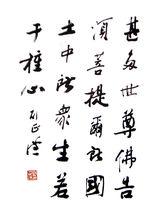 甚多世尊佛告
須菩提爾所國
土中所衆生若
干種心